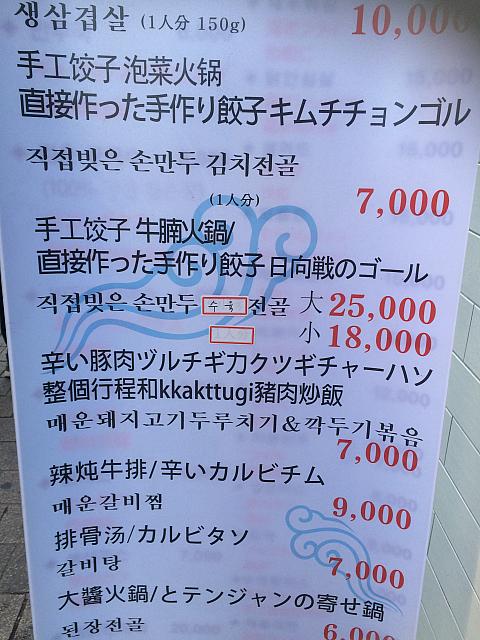 생삼겹살 (1人分 150g) 10,000
手工饺子 泡菜火锅
直接作った手作り餃子キムチチョンゴル
직접빚은 손만두 김치전골
(1人分) 7,000
手工饺子 牛腩火鍋/
直接作った手作り餃子日向戦のゴール
직접빚은 손만두 수육 전골 大 25,000
小 18,000
辛い豚肉ヅルチギカクツギチャーハソ
整個行程和kkakttugi豬肉炒飯
매운돼지고기두루치기&깍두기볶음
7,000
辣炖牛排/辛いカルビチム
매운갈비찜 9,000
排骨汤/カルビタソ
갈비탕 7,000
大醬火鍋/とテンジャンの寄せ鍋
된장전골 6,000